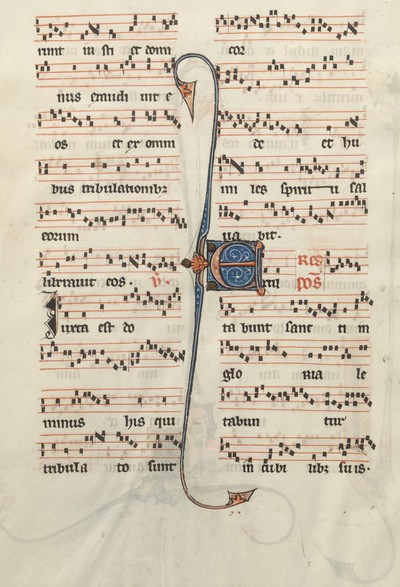 runt iu sti et domi
nus exaudi uit e
os et ex omni
bus tribulationibz
eorum
liberauit eos. V.
Iuxta est do
minus his qui
tribula to sunt
cor
de et hu
mi les spiritu sal
ua bit.
Res
pos
ta bunt sanc ti in
glo ria le
tabun tur
in cubi libz suis.